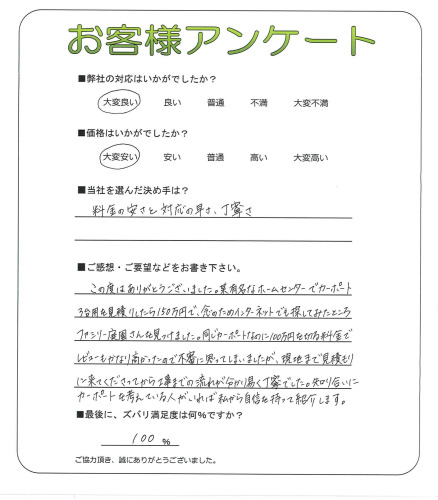 お客様アンケート
■弊社の対応はいかがでしたか?
大変良い 良い 普通 不満 大変不満
■価格はいかがでしたか?
大変安い 安い 普通 高い 大変高い
■当社を選んだ決め手は?
料金の安さと対応の早さ、丁寧さ
■ご感想・ご要望などをお書き下さい。
この度はありがとうございました。某有名なホームセンターでカーポート
3台用を見積りしたら150万円で、念のためインターネットでも探してみたところ
ファミリー庭園さんを見つけました。同じカーポートなのに100万円を切る料金で
レビューもかなり高かったので不審に思ってしまいましたが、現地まで見積もり
に来てくださってから工事までの流れが分かり易く丁寧でした。知り合いに
カーポートを考えている人がいれば私から自信を持って紹介します。
■最後に、ズバリ満足度は何%ですか?
100 %
ご協力頂き、誠にありがとうございました。